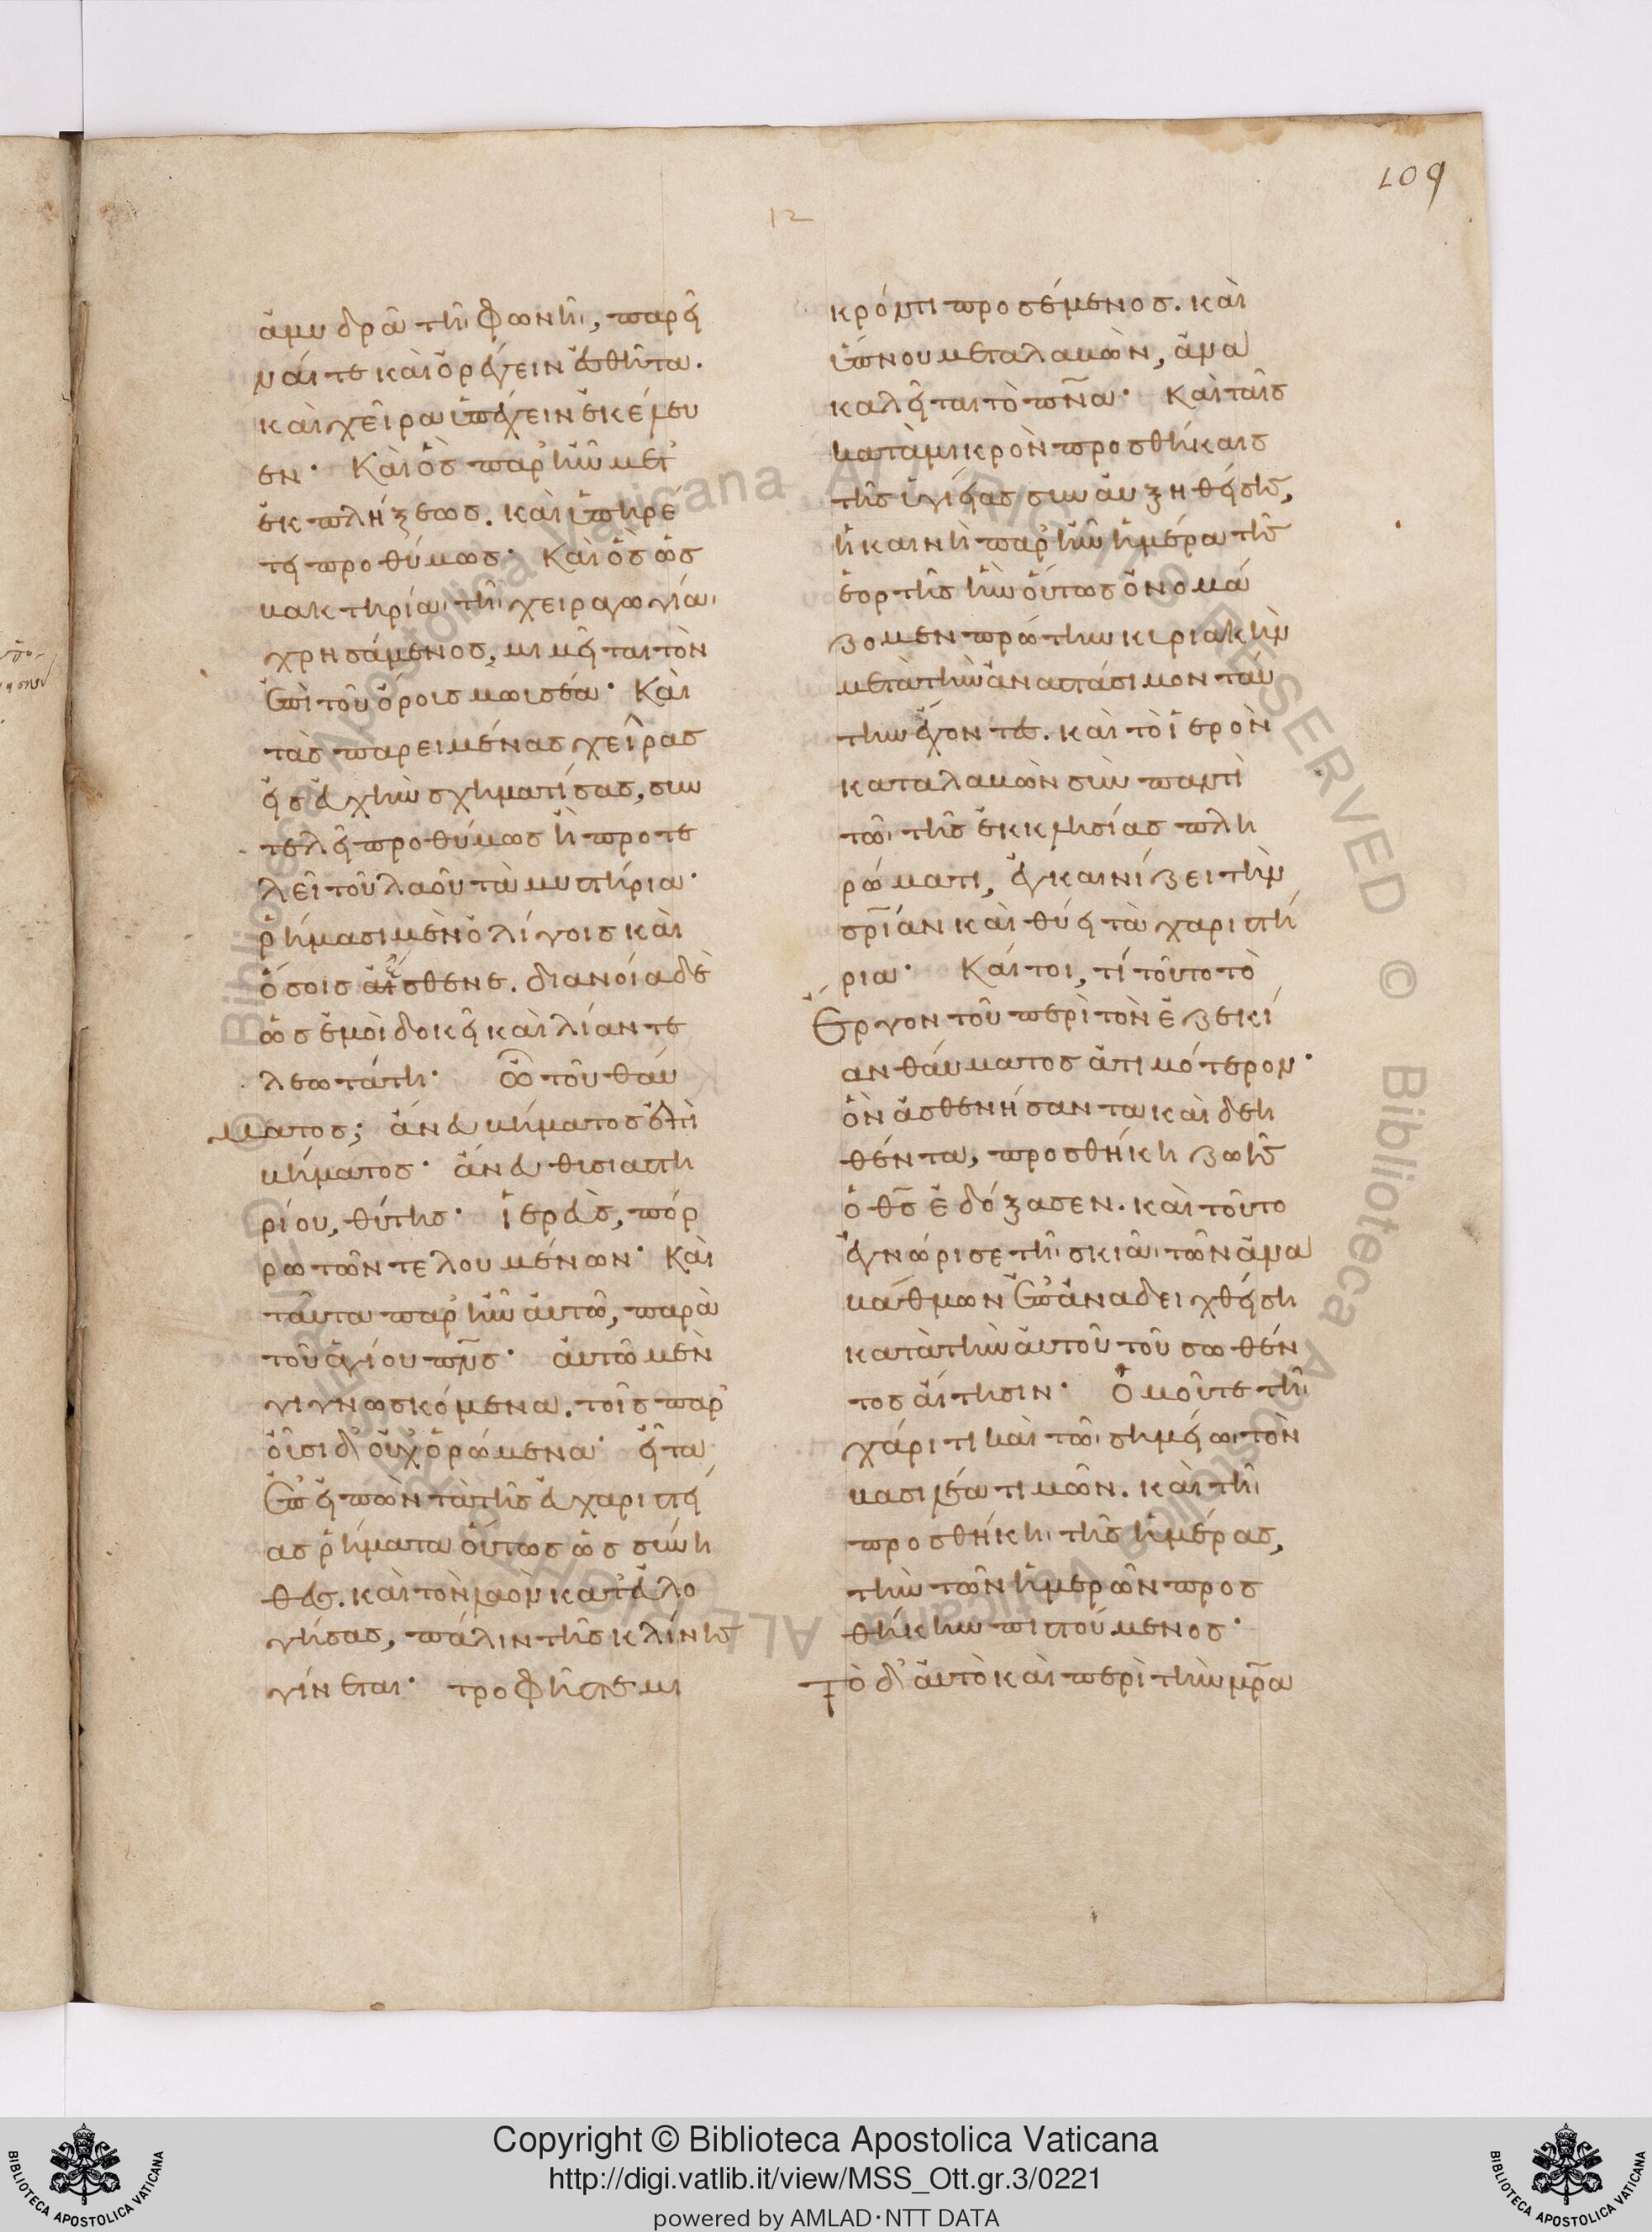 109
12
ἀμυδρᾶ τῆι φωνῆι, παρεῖ
ναί τε καὶ ὀρέγειν ἐσθῆτα.
καὶ χεῖρα ὑπέχειν ἐκέλευ
εν· Καὶ ὃς παρ' ἦν μετ'
ἐκπλήξεως. καὶ ὑπηρέ
τει προθύμως· Καὶ ὃς ὡς
βακτηρίαι τῆι χειραγωγίαι
χρησάμενος, μιμεῖται τὸν
ἐπὶ τοῦ ὄροις μωισέα· Καὶ
τὰς παρειμένας χεῖρας
εἰς εὐχὴν σχηματίσας, συν
τελεῖ προθύμως ἢ προτε
λεῖ τοῦ λαοῦ τὰ μυστήρια·
ῥήμασι μὲν ὀλίγοις καὶ
ὅσοις ἔσθενε. διανοία δὲ
ὡς ἐμοὶ δοκεῖ καὶ λίαν τε
λεωτάτη· ὢ τοῦ θαύ
ματος; ἄνευ βήματος ἐπὶ
βήματος· ἄνευ θυσιαστη
ρίου, θύτης· ἱερεὺς, πόρ
ρω τῶν τελουμένων· Καὶ
ταῦτα παρ' ἦν αὐτῶ, παρὰ
τοῦ ἁγίου πν̅ς· αὐτῶ μὲν
γιγνωσκόμενα. τοῖς παρ
οῦσι δ' οὐχ ὁρώμενα· εἶτα
ἐπειπὼν τὰ τῆς εὐχαριστεί
ας ῥήματα οὕτως ὡς σύνη
θες. καὶ τὸν λαὸν κατευλο
γήσας, πάλιν τῆς κλίνης
γίνεται· τροφῆς τε μι
κρόν τι προσέμενος. καὶ
ὕπνου μεταλαβὼν, ἅμα
καλεῖται τὸ πν̅α· Καὶ ταῖς
κατὰ μικρὸν προσθήκαις
τῆς ὑγιείας συναυξηθείσης,
ἡ καινὴ παρ' ἦν ἡμέρα τῆς
ἑορτῆς ἣν οὕτως ὀνομά
ζομεν πρώτην κυριακὴν
μετὰ τὴν ἀναστάσιμον ταύ
την ἔχοντες. καὶ τὸ ἱερὸν
καταλαβὼν σὺν παντὶ
τῶι τῆς ἐκκλησίας πλη
ρώματι, ἐγκαινίζει τὴν
σρ̅ίαν καὶ θύει τὰ χαριστή
ρια· Καίτοι, τί τοῦτο τὸ
ἔργον τοῦ περὶ τὸν ἐζεκί
αν θαύματος ἀτιμότερον·
ὃν ἀσθενήσαντα καὶ δεη
θέντα, προσθήκη ζωῆς
ὁ θ̅ς ἐδόξασεν. καὶ τοῦτο
ἐγνώρισε τῆι σκιᾶι τῶν ἀνα
βάθμων ἐπαναδειχθείση
κατὰ τὴν αὐτοῦ τοῦ σωθέν
τος αἴτησιν· Ὁμοῦ τε τῆι
χάριτι καὶ τῶι σημείωι τὸν
βασιλέα τιμῶν. καὶ τῆι
προσθήκηι τῆς ἡμέρας,
τὴν τῶν ἡμερῶν προσ
θήκην πιστούμενος·
Τὸ δ' αὐτὸ καὶ περὶ τὴν μρ̅α
BIBLIOTECA APOSTOLICA VATICANA
Copyright © Biblioteca Apostolica Vaticana
http://digi.vatlib.it/view/MSS_Ott.gr.3/0221
powered by AMLAD·NTT DATA
BIBLIOTECA APOSTOLICA VATICANA